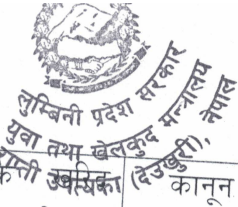 लुम्बिनी प्रदेश सरकार
युवा तथा खेलकुद मन्त्रालय
(देउखुरी), नेपाल
कानून